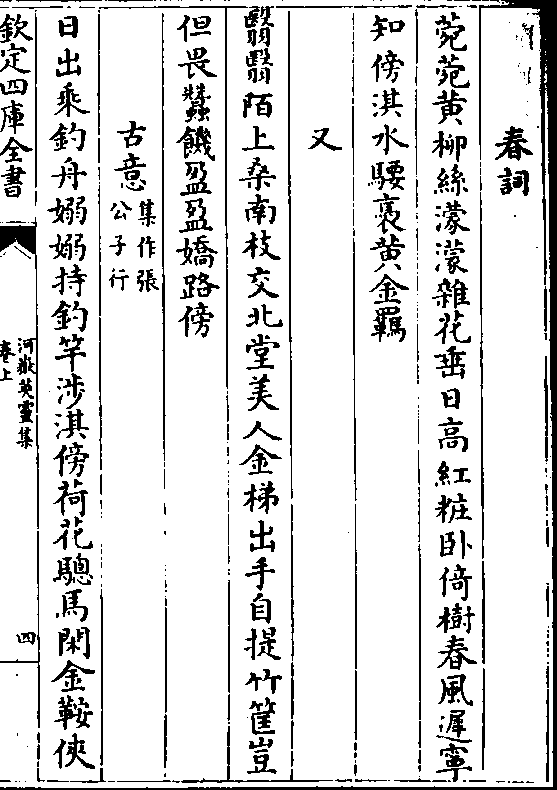 春詞
菀菀黄柳絲濛濛雜花垂日高紅粧卧倚樹春風遲寧
知傍淇水騕褭黄金羈
又
翳翳陌上桑南枝交北堂美人金梯出手自提竹筐豈
但畏蠶饑盈盈嬌路傍
古意集作張公子行
日出乘釣舟嫋嫋持釣竿涉淇傍荷花驄馬閑金鞍俠
欽定四庫全書
河嶽英靈集
卷上
四